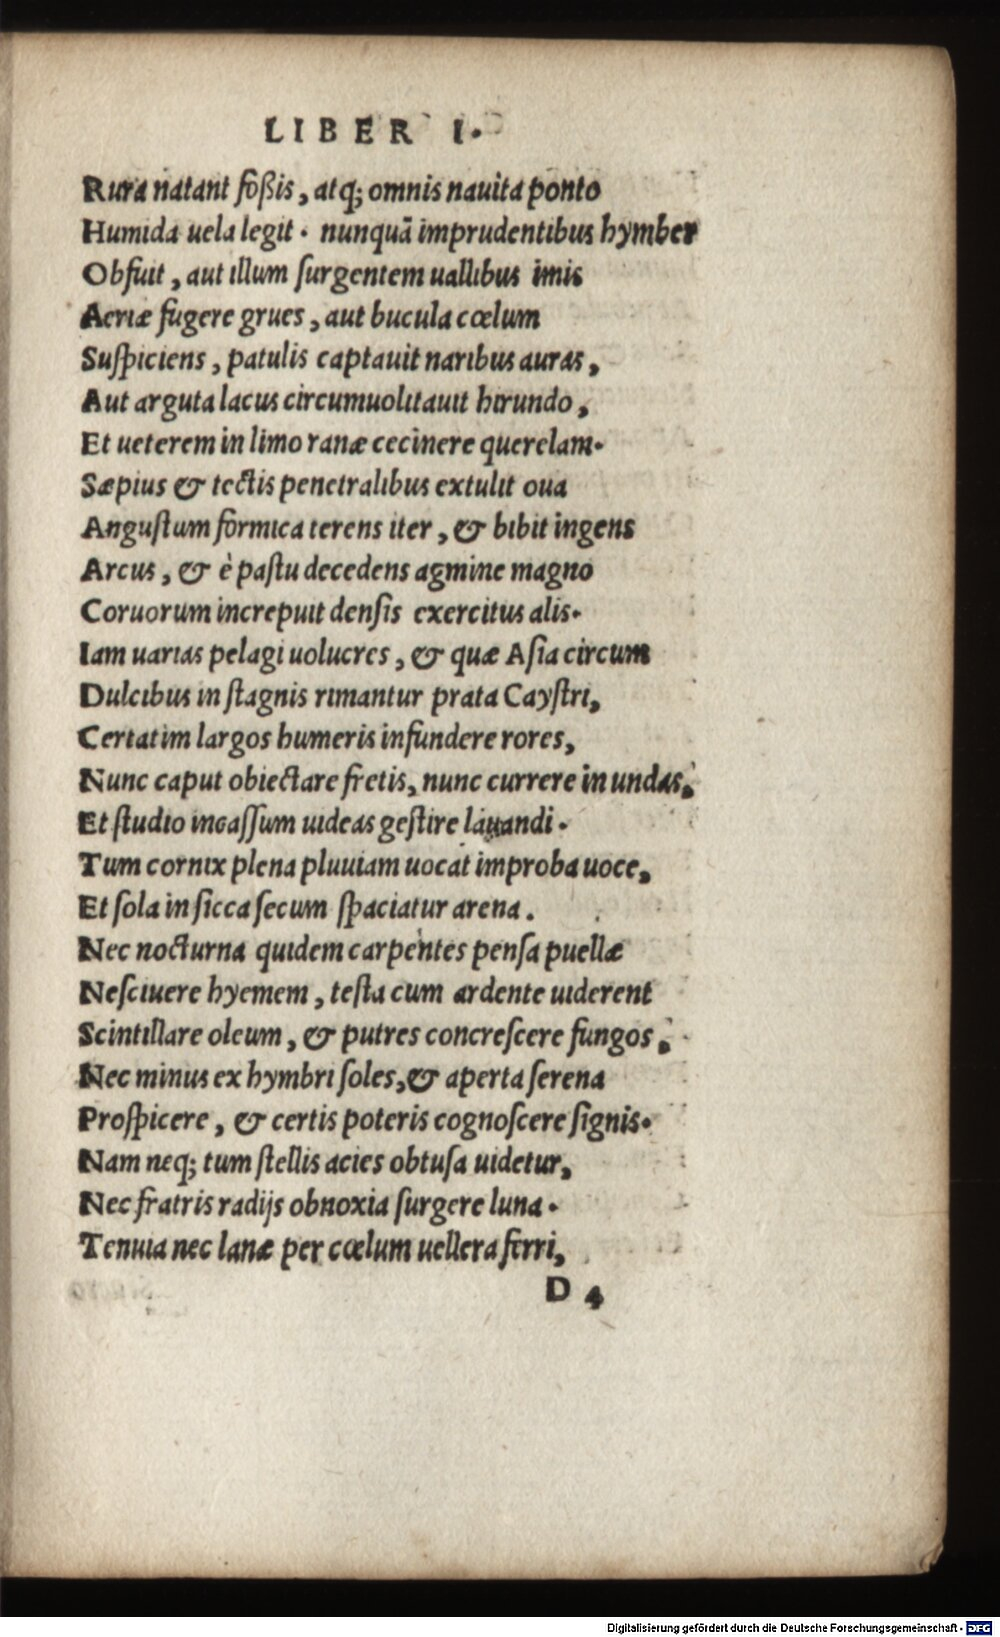 LIBER I.
Rura natant foßis, atq; omnis nauita ponto
Humida uela legit. nunquā imprudentibus hymber
Obfuit, aut illum surgentem uallibus imis
Aeriæ fugere grues, aut bucula cœlum
Suspiciens, patulis captauit naribus auras,
Aut arguta lacus circumuolitauit hirundo,
Et ueterem in limo ranæ cecinere querelam.
Sæpius & tectis penetralibus extulit oua
Angustum formica terens iter, & bibit ingens
Arcus, & è pastu decedens agmine magno
Coruorum increpuit densis exercitus alis.
Iam uarias pelagi uolucres, & quæ Asia circum
Dulcibus in stagnis rimantur prata Caystri,
Certatim largos humeris infundere rores,
Nunc caput obiectare fretis, nunc currere in undas,
Et studio incassum uideas gestire lauandi.
Tum cornix plena pluuiam uocat improba uoce,
Et sola in sicca secum spaciatur arena.
Nec nocturna quidem carpentes pensa puellæ
Nesciuere hyemem, testa cum ardente uiderent
Scintillare oleum, & putres concrescere fungos,
Nec minus ex hymbri soles, & aperta serena
Prospicere, & certis poteris cognoscere signis.
Nam neq; tum stellis acies obtusa uidetur,
Nec fratris radijs obnoxia surgere luna.
Tenuia nec lanæ per cœlum uellera ferri,
D 4
Digitalisierung gefördert durch die Deutsche Forschungsgemeinschaft - DFG